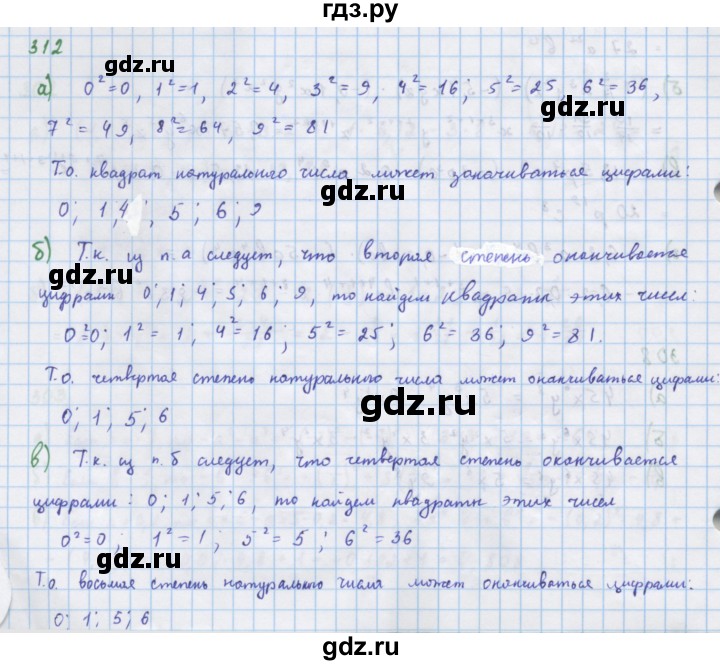 гдз.ру
312
а) 0² = 0, 1² = 1, 2² = 4, 3² = 9, 4² = 16; 5² = 25, 6² = 36,
gdz.ru
gdz.ru
7² = 49, 8² = 64, 9² = 81
Т.о. квадрат натурального числа может заканчиваться цифрами:
gdz.ru
0; 1, 4; 5; 6; 9
gdz.ru
б) Т.к. из п. а следует, что вторая степень оканчивается
gdz.ru
цифрами 0; 1; 4; 5; 6; 9, то найдем квадраты этих чисел:
gdz.ru
0² = 0; 1² = 1; 4² = 16; 5² = 25; 6² = 36; 9² = 81.
Т.о. четвертая степень натурального числа может оканчиваться цифрами:
gdz.ru
0; 1; 5; 6
в) Т.к. из п. б следует, что четвертая степень оканчивается
цифрами: 0; 1; 5; 6, то найдем квадраты этих чисел
gdz.ru
0² = 0; 1² = 1; 5² = 5; 6² = 36
gdz.ru
gdz.ru
Т.о. восьмая степень натурального числа может оканчиваться цифрами:
0; 1; 5; 6
gdz.ru
gdz.ru
гдз.ру